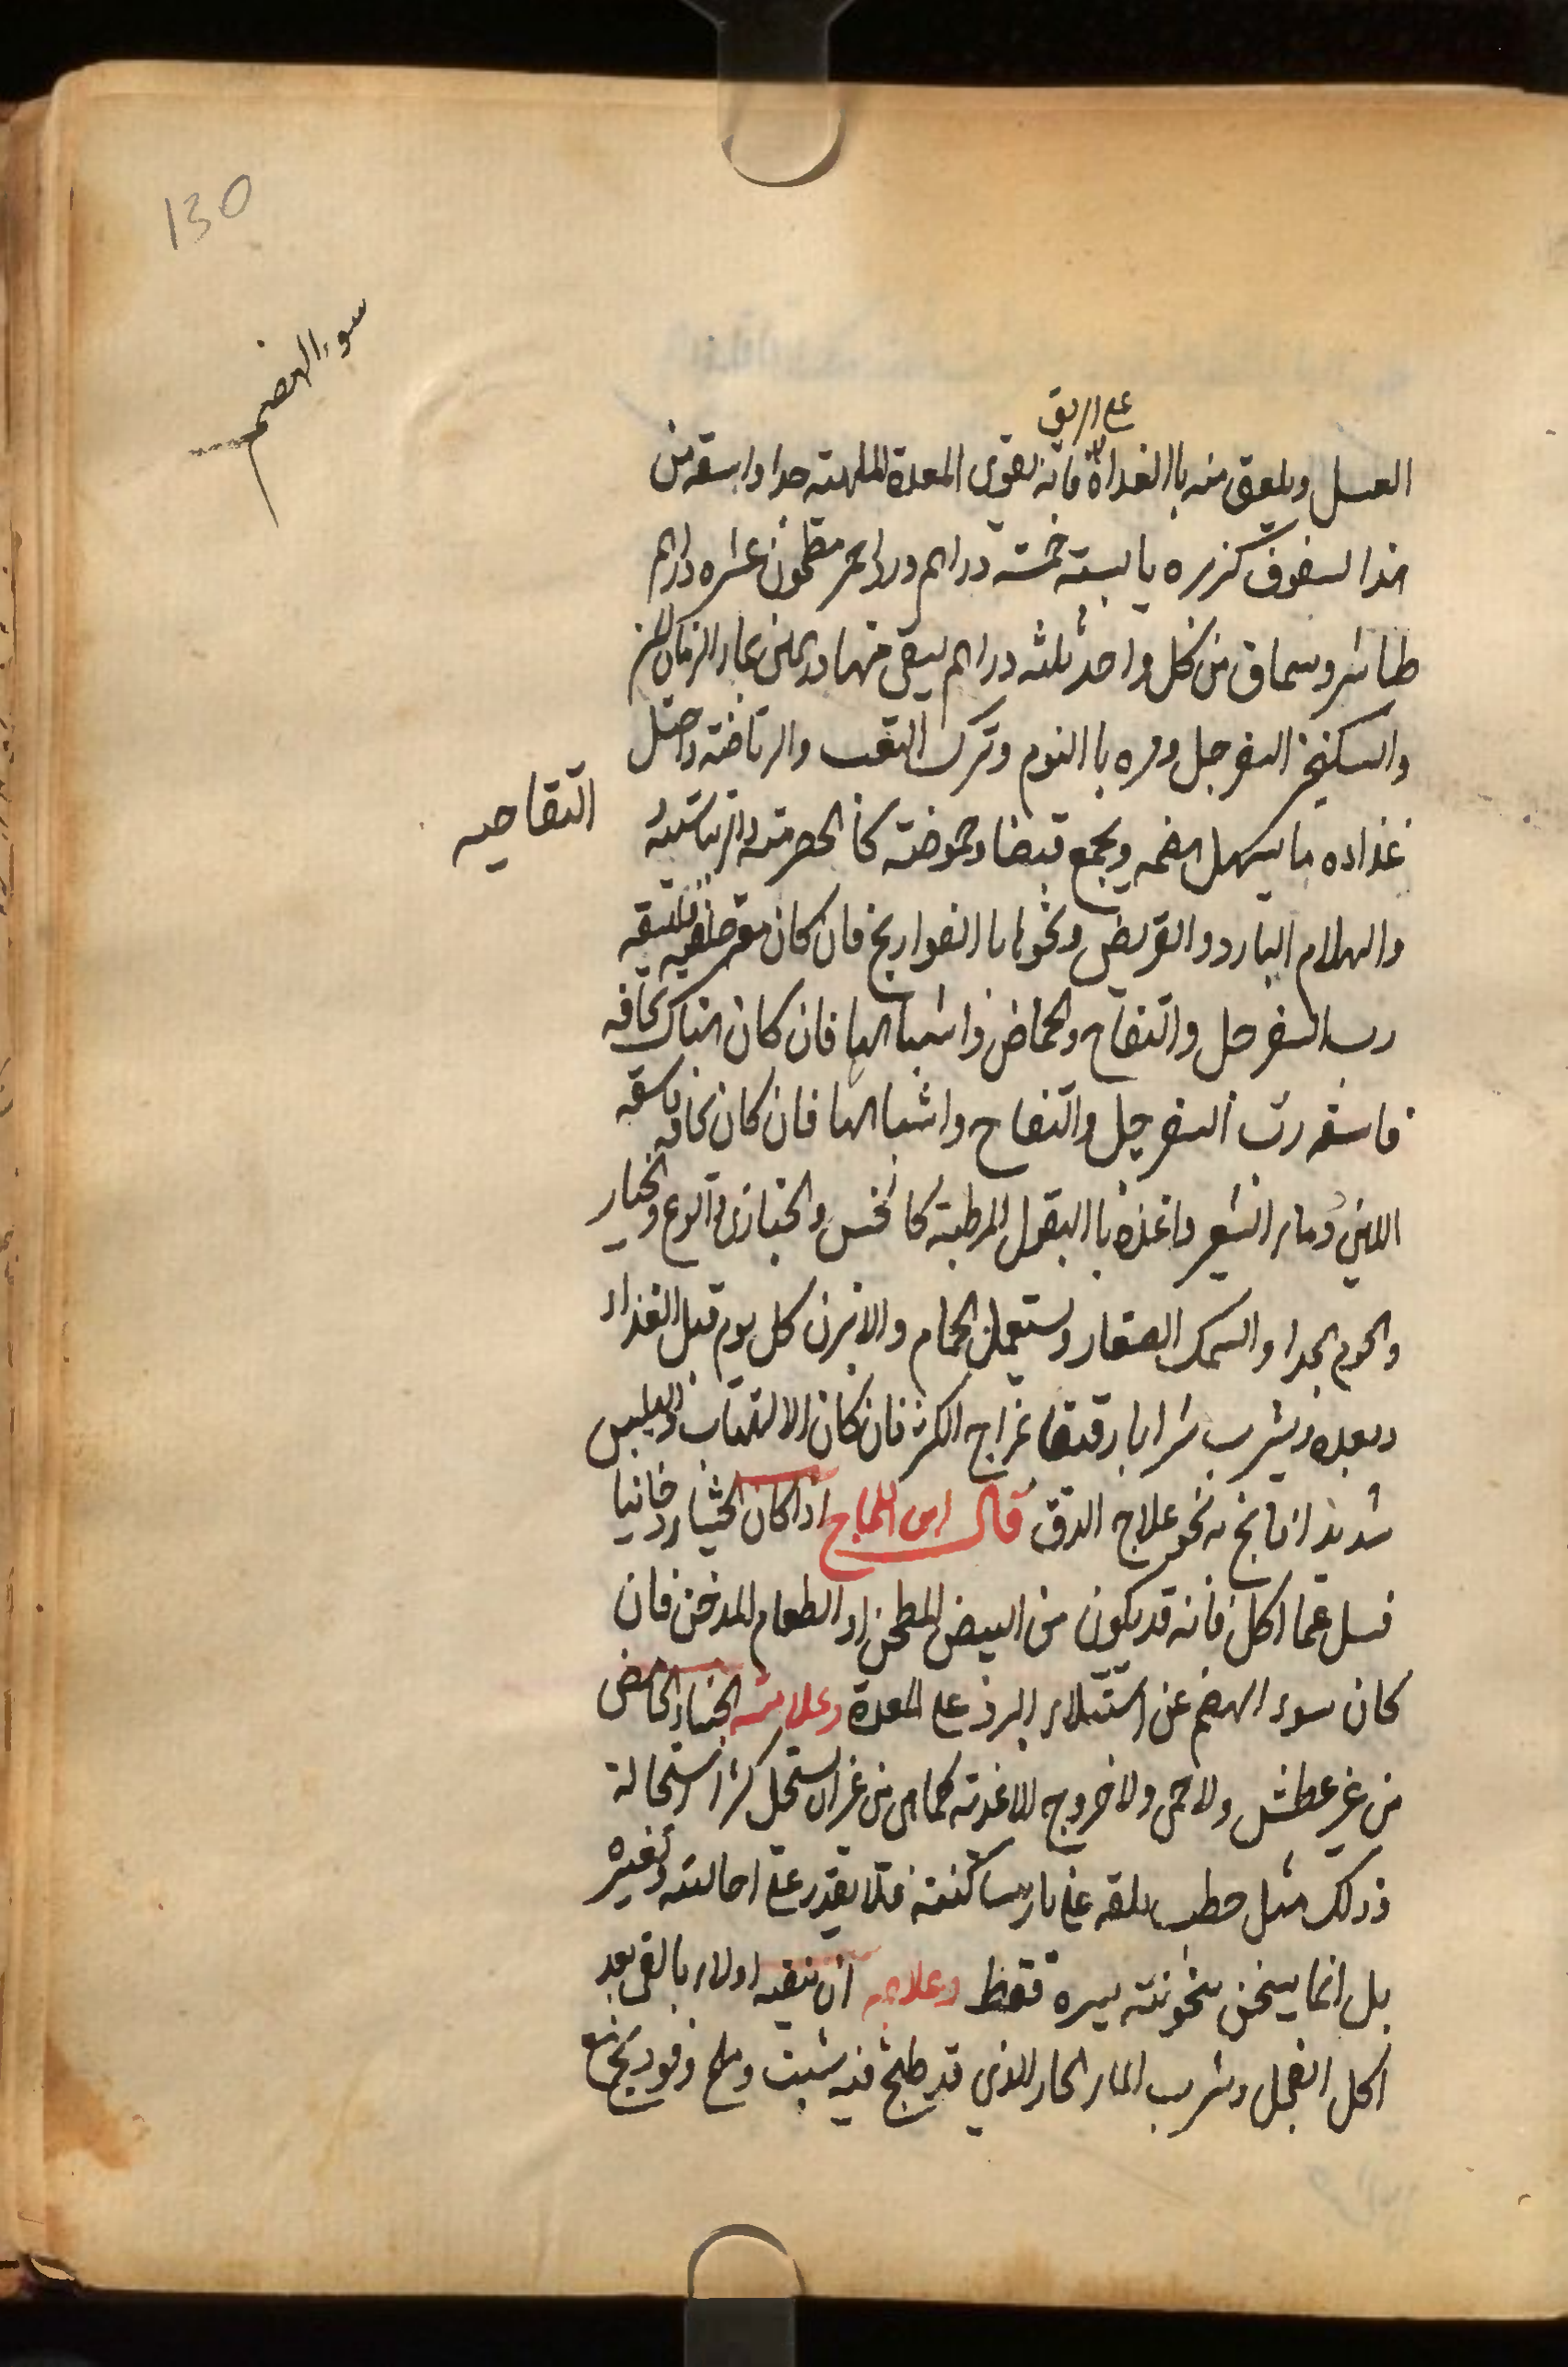 130
سوء الهضم
على الريق
العسل ويلعق منه باالغداة فانه يقوى المعدة الملهبته جدا واسقه من
هذا السفوف كزبره يابسته خمسته دراهم ورد احمر مطحون عشره دراهم
طباشير وسماق من كل واحد ثلثه دراهم يسقى منها درهمين بماء الرمان المز
والسكنجبين السفرجل ومره باالنوم وترك التعب والرياضته واجعل
غذاءه ما يسهل هضمه ويجمع قبضا وحموضته كاالحصرميه والريباسيه
التفاحيه
والهلام البارد والقريض ونحوها باالفواريج فان كان مع خلفه فلتسقه
رب السفرجل والتفاح والحماض واشباهها فان كان هناك نحافه
فاسقه رب السفرجل والتفاح واشباهها فان كان نحافه فاسقه
اللبن وماء الشعير واغذه باالبقول المرطبته كاالخس والخبازى والقرع والخيار
والحوم الجدا والسمك الصغار ويستعمل الحمام والابزن كل يوم قبل الغذاء
وبعده ويشرب شرابا رقيقا بمزاج الكثير فان كان الالتهاب واليبس
شديدا فانح به نحو علاج الدق قال ابن اللجلاج اذا كان الجشاء دخانيا
فسل عما اكل فانه قد يكون من البيض المطجن او الطعام المدخن فان
كان سوء الهضم عن استيلاء البرد على المعدة وعلامته الجشاء الحامض
من غير عطش ولا حمى ولا خروج للاغذيه كما هى من غير ان يستحل كثير استحالة
وذلك مثل حطب يلقه على نار ساكنته فلا يقدر على احالته وتغيره
بل انما يسخن سخونته يسيره فقط وعلاجه ان تنقيه اولاء بالقى بعد
اكل الفجل وشرب الماء الحار الذي قد طبخ فيه شبت وملح